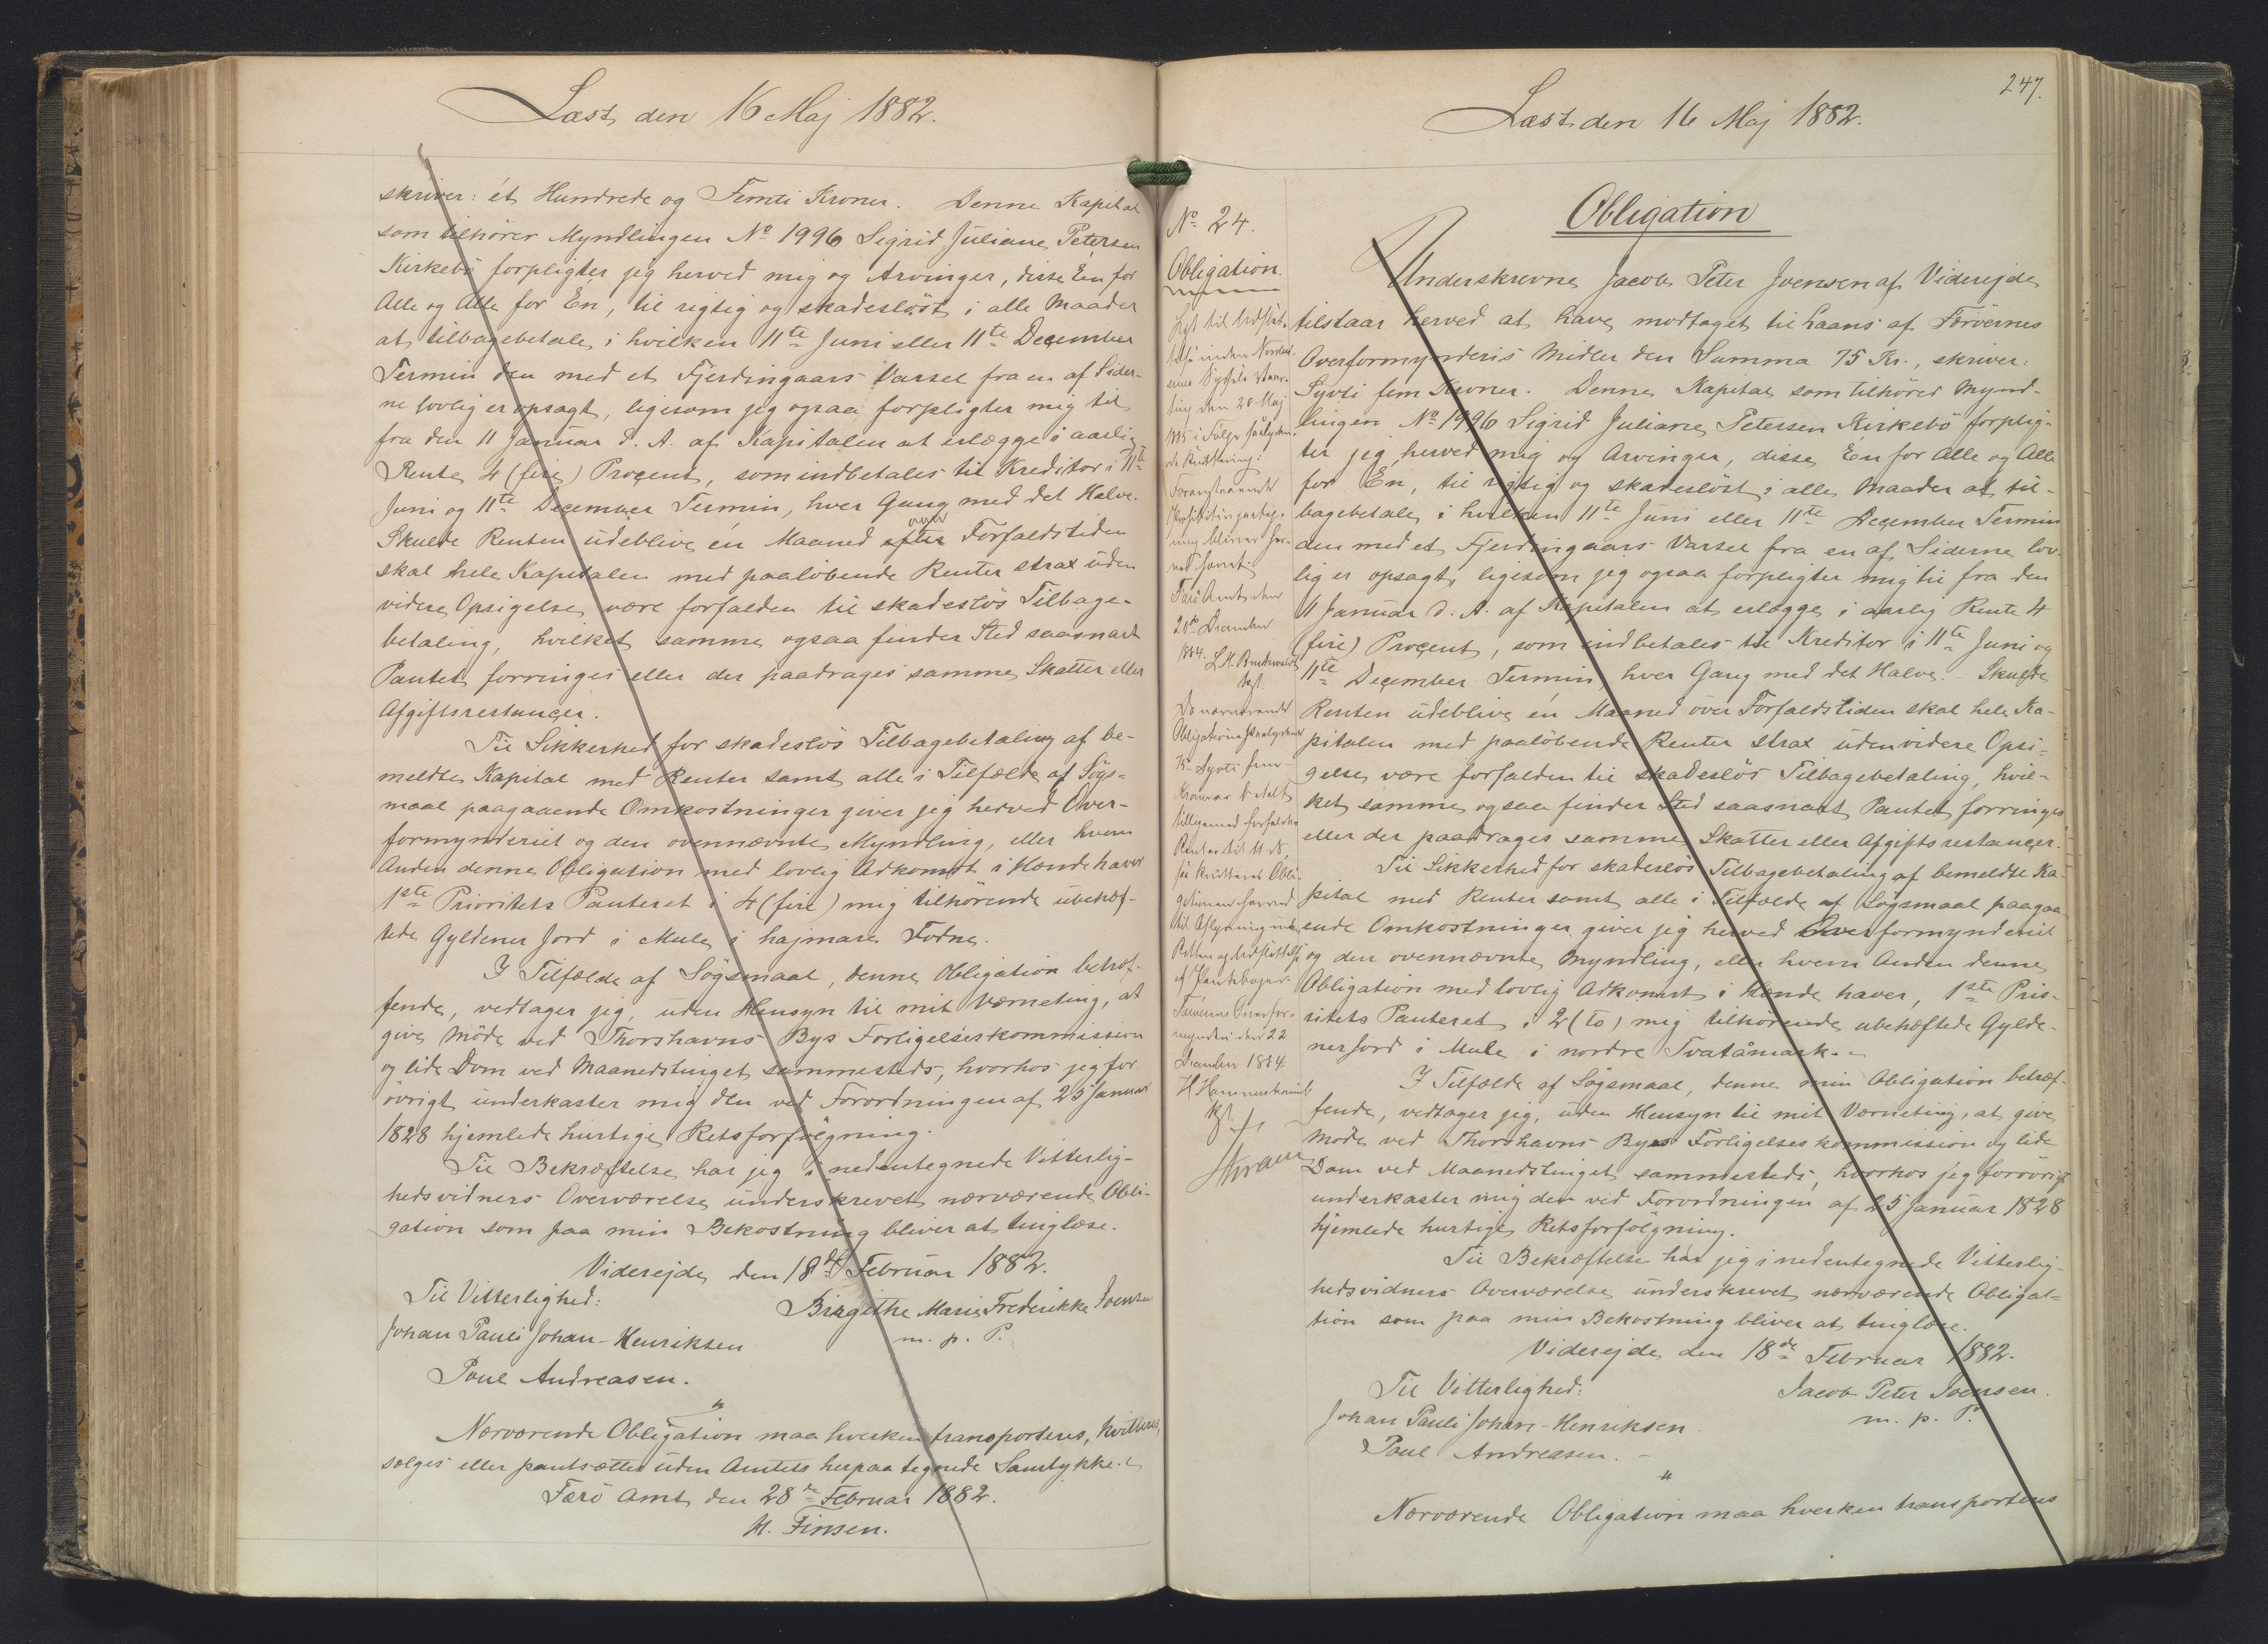 Læst den 16 Maj 1882.
skriver: ét Hundrede og Femti Kroner. Denne Kapital
som tilhører Myndlingen No 1996 Sigrid Juliane Petersen
Kirkebö forpligter jeg herved mig og Arvinger, disse Én for
Alle og Alle for Én, til rigtig og skadeslöst i alle Maader
at tilbagebetale i hvilken 11te Juni eller 11te December
Termin den med et Fjerdingaars Varsel fra en af Sider-
ne lovlig er opsagt, ligesom jeg ogsaa forpligter mig til
fra den 11 Januar d. A. af Kapitalen at erlægge i aarlig
Rente 4 (fire) Procent, som indbetales til Kreditor i 11te
Juni og 11te December Termin, hver Gang med det Halve.
Skulde Renten udeblive én Maaned efter over Forfaldstiden
skal hele Kapitalen med paalöbende Renter strax uden
videre Opsigelse være forfalden til skadeslös Tilbage-
betaling, hvilket samme ogsaa finder Sted saasnart
Pantet forringes eller der paadrages samme Skatter eller
Afgiftsrestancer.
Til Sikkerhed for skadeslös Tilbagebetaling af be-
meldte Kapital med Renter samt alle i Tilfælde af Sögs-
maal paagaaende Omkostninger giver jeg herved Over-
formynderiet og den ovennævnte Myndling, eller hvem
Anden denne Obligation med lovlig Adkomst i Hænde haver
1ste Prioritets Panteret i 4 (fire) mig tilhörende ubehæf-
tede Gyldener Jord i Mule i hajmare Todne.
I Tilfælde af Sögsmaal, denne Obligation betræf-
fende, vedtager jeg, uden Hensyn til mit Værneting, at
give Möde ved Thorshavns Bys Forligelseskommission
og lide Dom ved Maanedstinget sammesteds, hvorhos jeg for
övrigt underkaster mig den ved Forordningen af 25 Januar
1828 hjemlede hurtige Retsforfölgning.
Til Bekræftelse har jeg i nedentegnede Vitterlig-
hedsvidners Overværelse underskrevet nærværende Obli-
gation som paa min Bekostning bliver at tinglæse.
Viderejde den 18de Februar 1882.
Til Vitterlighed: Birgithe Marie Frederikke Joensen
Johan Pauli Johan-Henriksen m. p. P.
Poul Andreasen.
Nærværende Obligation maa hverken transporteres, kvitteres,
sælges eller pantsættes uden Amtets herpaa tegnede Samtykke.
Færö Amt den 28de Februar 1882.
H. Finsen.
247.
Læst den 16 Maj 1882.
No 24.
Obligation.
Lyst til Udslet-
telse inden Norder-
öernes Syssels Vaar-
ting den 20 Maj
1885 i Fölge saalyden-
de Kvittering:
Foranstaaende
Prohibitivpaateg-
ning bliver her-
ved hævet.
Færö Amt den
20de December
1884.
Da nærværende
Obligations Paalydende
75 Syvti fem
Kroner er betalt
tilligemed forfaldne
Renter til 11 ds,
saa kvitteres Obli-
gationen herved
til Aflysning inden
Retten og Udslettelse
af Pantebogen.
Færöernes Overfor-
mynderi den 22
December 1884
H Hammershaimb
kst.
Obligation
Underskrevne Jacob Peter Joensen af Viderejde
tilstaar herved at have modtaget tilLaans af Færöernes
Overformynderis Midler den Summa 75 Kr., skriver:
Syvti fem Kroner. Denne Kapital som tilhörer Mynd-
lingen No 1996 Sigrid Juliane Petersen Kirkebö forplig-
ter jeg herved mig og Arvinger, disse Én for Alle og Alle
for Én, til rigtig og skadeslöst i alle Maader at til-
bagebetale i hvilken 11te Juni eller 11te December Termin
den med et Fjerdingaars Varsel fra en af Siderne lov-
lig er opsagt, ligesom jeg ogsaa forpligter mig til fra den
11 Januar d. A. af Kapitalen at erlægge i aarlig Rente 4
(fire) Procent, som indbetales til Kreditor i 11te Juni og
11te December Termin, hver Gang med det Halve. Skulde
Renten udeblive én Maaned over Forfaldstiden skal hele Ka-
pitalen med paalöbende Renter strax uden videre Opsi-
gelse være forfalden til skadeslös Tilbagebetaling, hvil-
ket samme ogsaa finder Sted saasnart Pantet forringes
eller der paadrages samme Skatter eller Afgiftsrestancer.
Til Sikkerhed for skadeslös Tilbagebetaling af bemeldte Ka-
pital med Renter samt alle i Tilfælde af Sögsmaal paagaa-
ende Omkostninger giver jeg herved Overformynderiet
og den ovennævnte Myndling, eller hvem Anden denne
Obligation med lovlig Adkomst i Hænde haver, 1ste Prio-
ritets Panteret i 2 (to) mig tilhörende ubehæftede Gylde-
ner Jord i Mule i nordre Tvatåmark.
I Tilfælde af Sögsmaal, denne min Obligation betræf-
fende, vedtager jeg, uden Hensyn til mit Værneting, at give
Möde ved Thorshavns Bys Forligelseskommission og lide
Dom ved Maanedstinget sammesteds, hvorhos jeg forövrigt
underkaster mig den ved Forordningen af 25 Januar 1828
hjemlede hurtige Retsforfölgning.
Til Bekræftelse har jeg i nedentegnede Vitterlig-
hedsvidners Overværelse underskrevet nærværende Obliga-
tion som paa min Bekostning bliver at tinglæse.
Viderejde den 18de Februar 1882.
Til Vitterlighed: Jacob Peter Joensen.
Johan Pauli Johan-Henriksen m. p. P.
Poul Andreasen.
Nærværende Obligation maa hverken transporteres